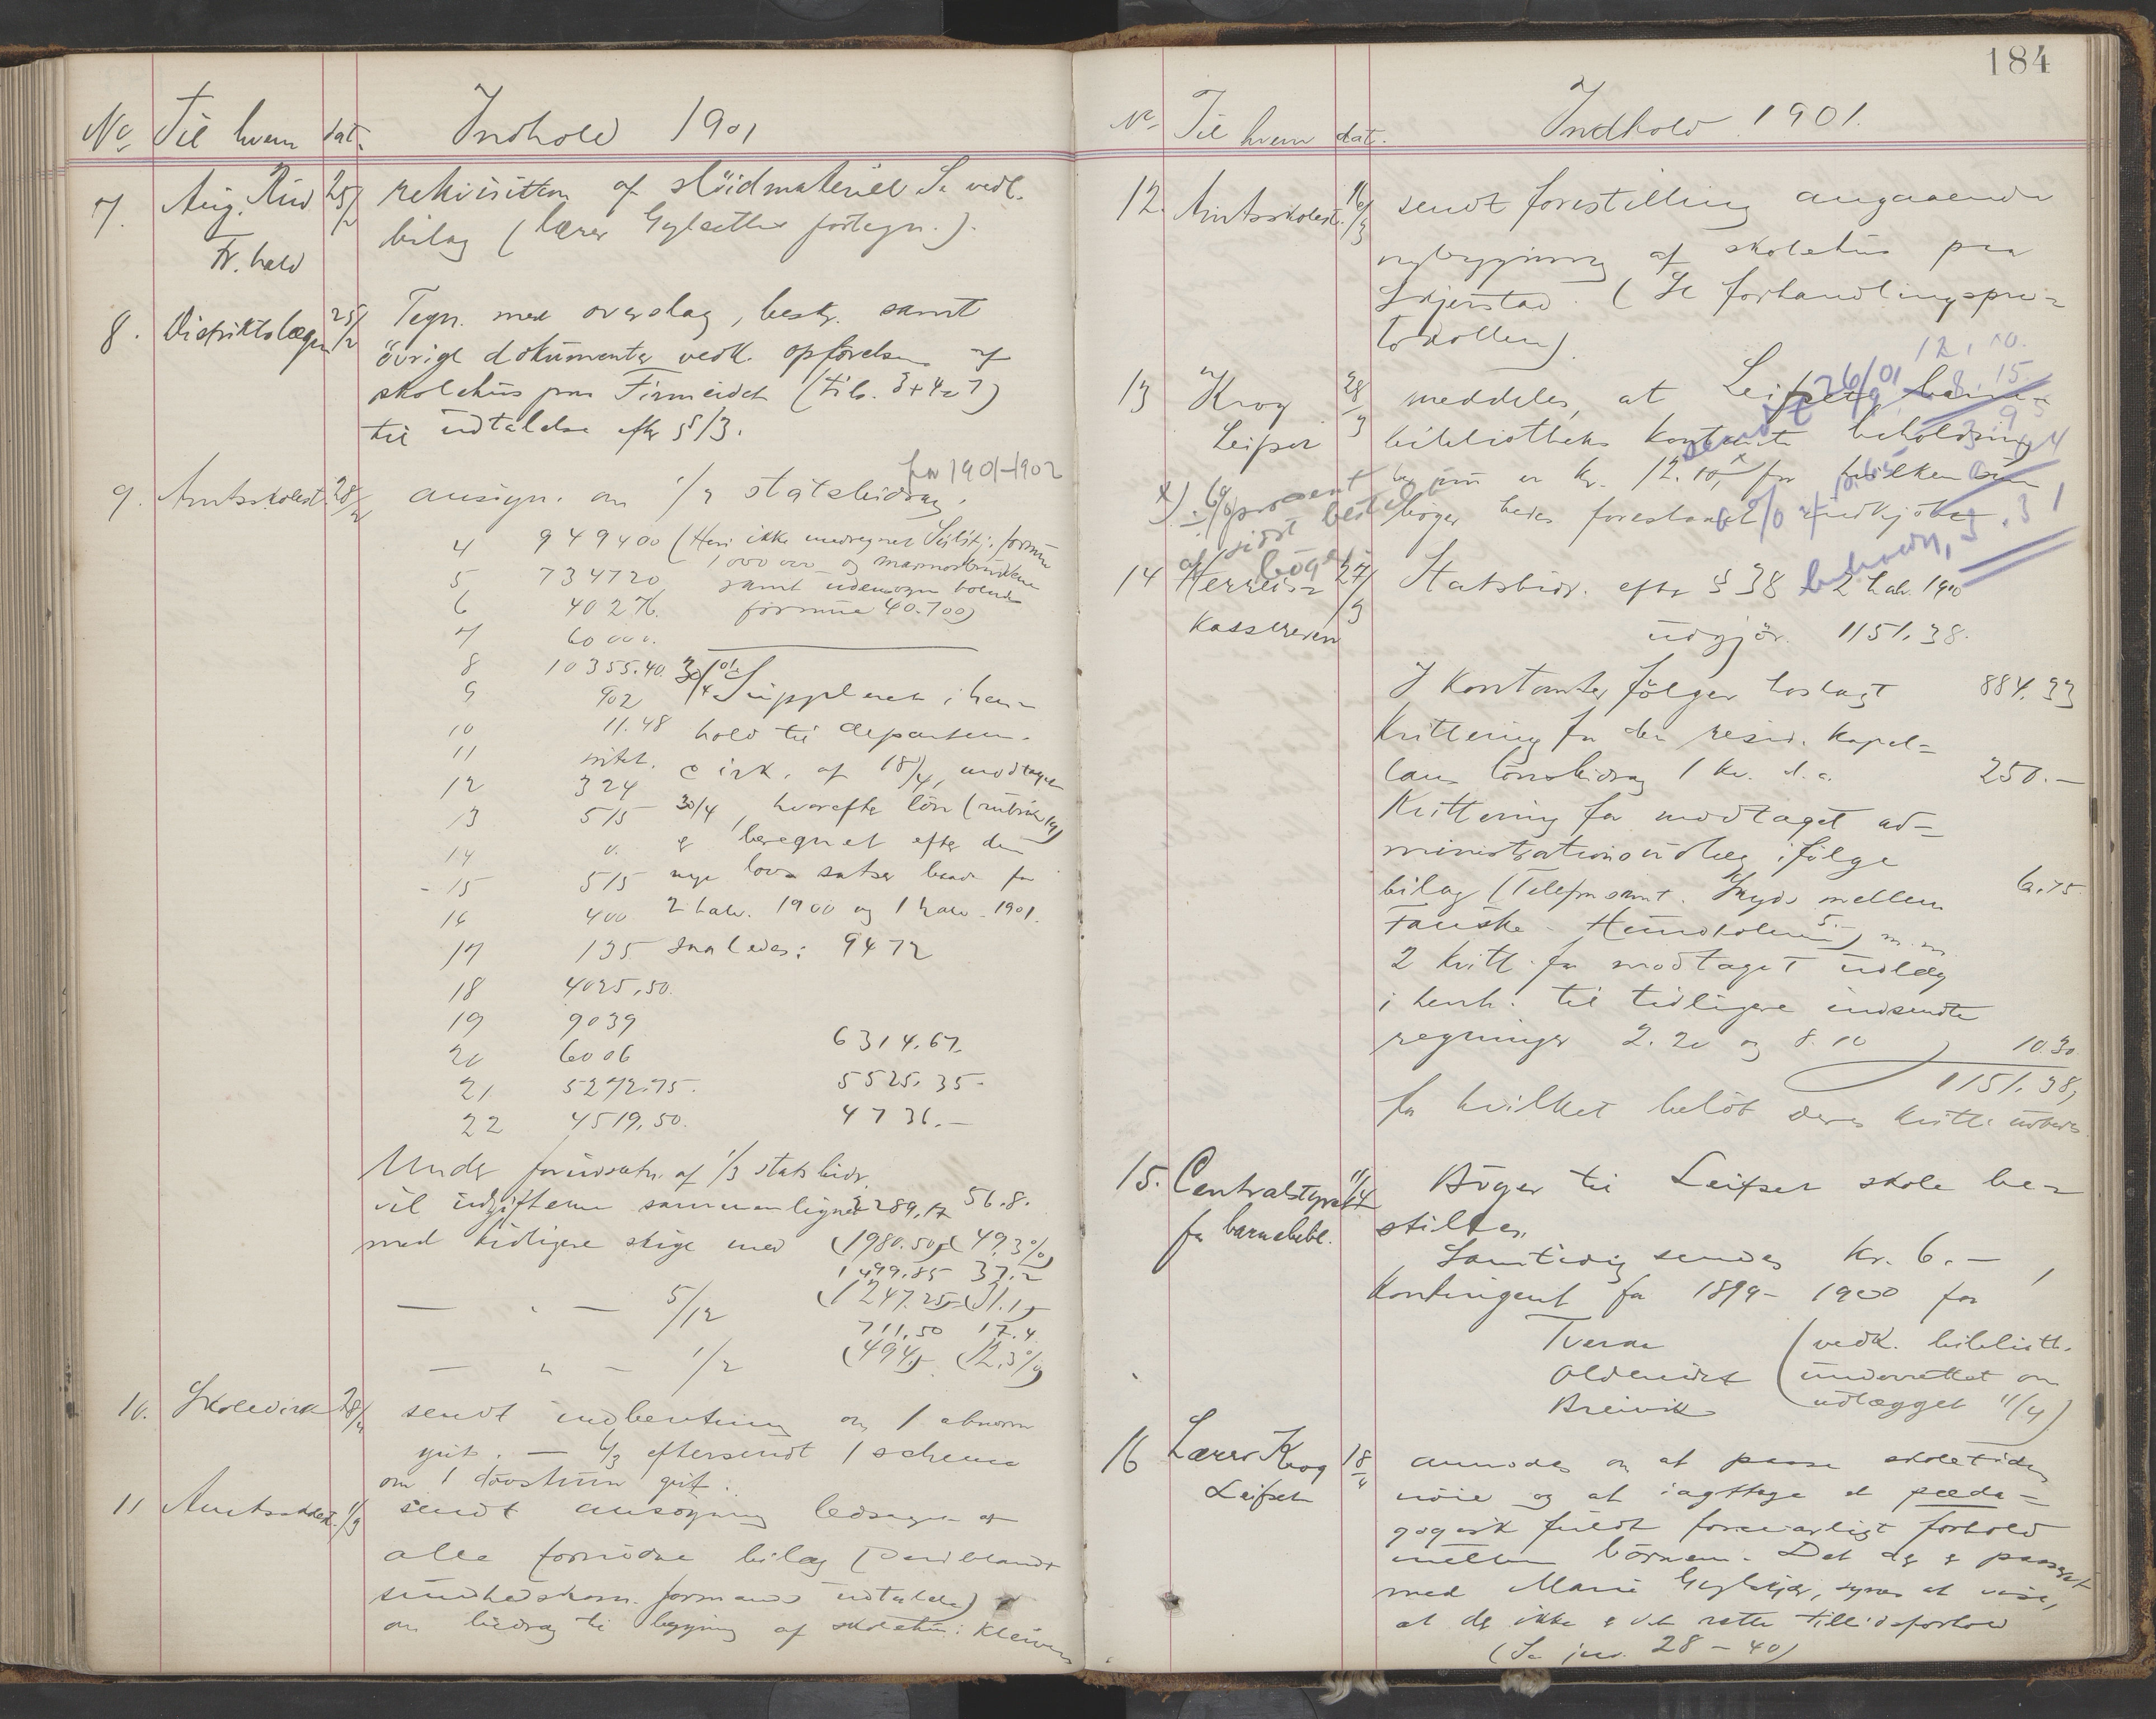 No Til hvem dat. Indhold 1901
7. Aug. Riis 25/2 rekvisition af slöidmateriel Se vedl.
Fr.hald bilag (lærer Gylseths fortegn.).
8. Distriktslægen 25/2 Tegn. med overslag, beskr. samt
övrige dokumenter vedk. opförelsen af
skolehus paa Finneidet (tils. 3+4=7)
til udtalelse efter §13.
for 1901-1902
9. Amtsskolest. 28/2 ansøgn. om 1/3 statsbidrag.
4 949400 (Heri ikke medregnet Sulitj. formue
1000000 og marmorbruddene
5 734720 samt udensogns boende
6 40276. formue 40.700)
7 60000.
8 10355.40. 30/4 01
9 902 Supplerende i hen-
10 11.48 hold til departem.
11 intet. cirk. af 18/4, modtaget
12 324 30/4, hvorefter lön (rubrik 19)
13 515
14 0. er beregnet efter den
15 515 nye lovs satser baade for
16 400 2 halv. 1900 og 1 halv. 1901.
17 135 saaledes: 9472
18 4025,50.
19 9039
20 6006 6314.67.
21 5272.75. 5525.35.
22 4519,50. 4736.—
Under forudsætn. af 1/3 statsbidr.
vil udgifterne sammenlignet 2289,17 56.8.
med tidligere stige med (1980.50) (49.3%)
1499.85 37.2
— " — 5/12 (1247.25) (31.1)
711,50 17.4
— " — 1/2 (494) (12.3%)
10. Skoledirek 28/2 sendt indberetning om 1 abnorm
gut. — 4/3 eftersendt 1 schema
om 1 døvstum gut.
11 Amtsskolest. 1/3 sendt ansögning ledsaget af
alle fornödne bilag (deriblandt
sundhedskom. formands udtalelse)
om bidrag til bygning af skolehus i Kleiven
184
No Til hvem dat. Indhold 1901.
12. Amtsskolest. 16/3 sendt forestilling angaaende
nybygning af skolehus paa
Skjerstad. (Se forhandlingspro=
tokollen).
12,10.
8.15
13 Krog 28/3 meddeles, at Leifset barne=
Leifset bibliotheks kontante beholdning
sendt 26/9 01
her inde er kr. 12.10,x for hvilken sum
x) ÷ 6% procent
af sidst bestil
böger
böger bedes forestaaet indkjöbet
beholdn, 3.31
14 Herreds= 27/3 Statsbidr. efter § 38 2 halv. 1900
kassereren udgjör 1151.38.
I kontanter fölger vedlagt 884.33
Kvittering for den resid. kapel=
lans lönsbidrag 1 kv. d.a. 250.—
Kvittering for modtaget ad=
ministrationsudlæg ifölge
bilag (Telefon samt. Skyds mellem 6.75
Fauske - Hundholmen 5.-) m.m
2 kvitt. for modtaget udlæg
i henh. til tidligere indsendte
regninger 2.20 og 8.10 10.30
1151.38,
for hvilket belöb deres kvitt. udbedes.
15. Centralstyret 11/4 Böger til Leifset skole be=
for barnebibl. stilles.
Samtidig sendes kr. 6.—,
kontingent for 1899- 1900 for
Tveraa (vedk. biblioth.
Oldereidet underrettet om
Breivik udlægget 11/4)
16 Lærer Krog 18/4 anmodes om at passe skoletiden
Leifset nöie og at iagttage et pæda=
gogisk fuldt forsvarligt forhold
mellem börnene. Det der er passeret
med Marie, synes at vise,
at der ikke er det rette tillidsforhold
(Se jour. 28 - 40)